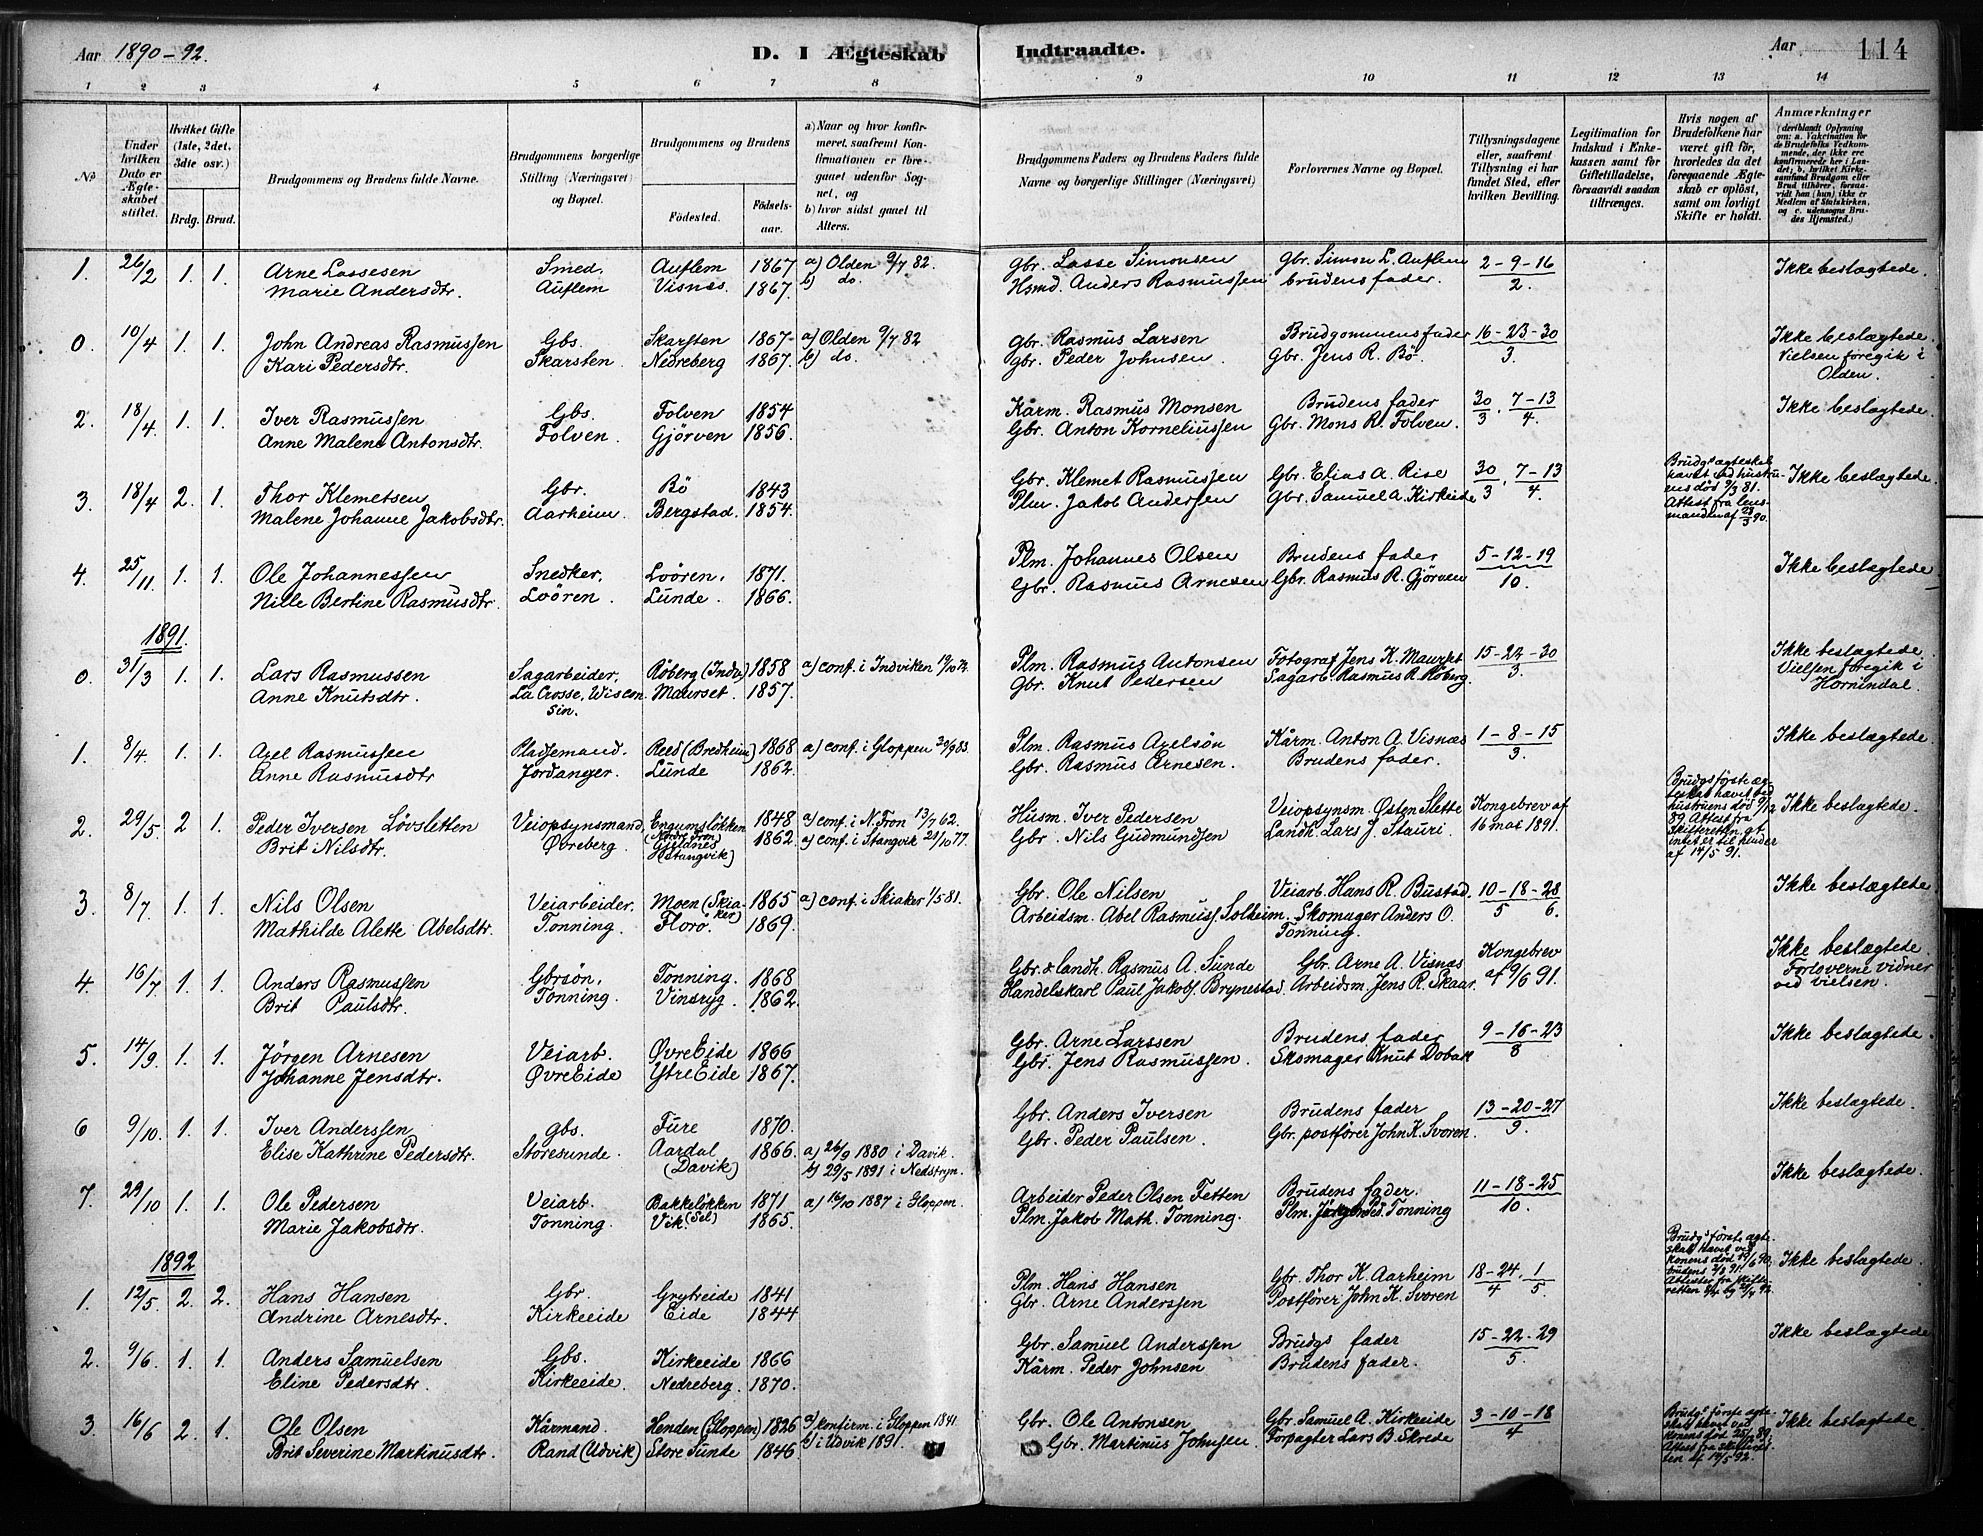 Aar 1890-92.
D. I Ægteskab Indtraadte.
Aar
114
1 2 3 4 5 6 7 8 9 10 11 12 13 14
No
Under hvilken Dato er Ægteskabet stiftet.
Hvilket Gifte (1ste, 2det, 3die osv.)
Brdg. Brud.
Brudgommens og Brudens fulde Navne.
Brudgommens borgerlige Stilling (Næringsvei) og Bopæl.
Brudgommens og Brudens
Fødested.
Fødselsaar.
a) Naar og hvor konfirmeret, saafremt Konfirmationen er foregaaet udenfor Sognet, og
b) hvor sidst gaaet til Alters.
Brudgommens Faders og Brudens Faders fulde Navne og borgerlige Stillinger (Næringsvei)
Forlovernes Navne og Bopæl.
Tillysningsdagene eller, saafremt Tillysning ei har fundet Sted, efter hvilken Bevilling.
Legitimation for Indskud i Enkekassen samt for Giftetilladelse, forsaavidt saadan tiltrænges.
Hvis nogen af Brudefolkene har været gift før, hvorledes da det foregaaende Ægteskab er opløst, samt om lovligt Skifte er holdt.
Anmærkninger
(deriblandt Oplysning om: a. Vakcination for de Brudefolks Vedkommende, der ikke ere konfirmerede her i Landet; b. hvilket Kirkesamfund Brudgom eller Brud tilhører, forsaavidt han (hun) ikke er Medlem af Statskirken, og c. udensogns Brudes Hjemsted.)
1. 26/2 1. 1. Arne Lassesen Smed. Auflem 1867 a) Olden 9/7 82. Gbr. Lasse Simonsen Gbr. Simon L. Auflem 2-9-16 Ikke beslægtede.
Marie Andersdtr. Auflem Visnes. 1867. b) do. Hsmd. Anders Rasmussen brudens fader. 2.
0. 10/4 1. 1. John Andreas Rasmussen Gbs. Skarsten 1867 a) Olden 9/7 82 Gbr. Rasmus Larsen Brudgommens fader 16-23-30 Ikke beslægtede.
Kari Pedersdtr. Skarsten Nedreberg 1867. b) do. Gbr. Peder Johnsen. Gbr. Jens R. Bö. 3. Vielsen foregik i Olden.
2. 18/4. 1. 1. Iver Rasmussen Gbs. Folven 1854 Kårm. Rasmus Monsen Brudens fader 30/3, 7-13/4. Ikke beslægtede.
Anne Malene Antonsdtr. Folven. Gjörven 1856. Gbr. Anton Korneliussen Gbr. Mons R. Folven.
3. 18/4 2. 1. Thor Klemetsen Gbr. Bö 1843 Gbr. Klemet Rasmussen Gbr. Elias A. Rise 30/3, 7-13/4. Brudgs ægteskab hævet ved hustruens död 9/3 81. Attest fra lensmanden af 29/3 90. Ikke beslægtede.
Malene Johanne Jakobsdtr. Aarheim. Bergstad. 1854. Plm. Jakob Anderssen Gbr. Samuel A. Kirkeeide
4. 25/11. 1. 1. Ole Johannessen Snedker. Loören. 1871. Plm. Johannes Olsen Brudens fader 5-12-19 Ikke beslægtede
Nille Bertine Rasmusdtr. Loören. Lunde. 1866. Gbr. Rasmus Arnesen Gbr. Rasmus R. Gjörven 10.
1891.
0. 31/3 1. 1. Lars Rasmussen Sagarbeider, Röberg (Indv.) 1858 a) conf. i Indviken Plm. Rasmus Antonsen Fotograf Jens K. Maurset 15-24-30 Ikke beslægtede.
Anne Knutsdtr. La Crosse, Wisconsin. Maurset. 1857. Gbr. Knut Pedersen Sagarb. Rasmus R. Röberg. 3. Vielsen foregik i Hornindal.
1. 8/4. 1. 1. Axel Rasmussen Pladsemand. Reed (Bredheim) 1868 a) conf. i Gloppen 30/9 83. Plm. Rasmus Axelsön Kårm. Anton A. Visnæs 1-8-15 Ikke beslægtede.
Anne Rasmusdtr Jordanger. Lunde 1862. Gbr. Rasmus Arnesen. Brudens fader. 3.
2. 29/5. 2 1. Peder Iversen Lövsletten Veiopsynsmand, Engumslökken (Nordre Fron) 1848 a) conf. i N. Fron 13/7 62. Husm. Iver Pedersen Veiopsynsm. Østen Slette Kongebrev af Brudgs förste ægteskab hævet ved hustruens död 9/12 89. Attest fra skifteretten at intet er til hinder af 14/5 91. Ikke beslægtede.
Brit Nilsdtr. Övreberg. Gjeldnes (Stangvik) 1862. a) conf. i Stangvik 21/10 77. Gbr. Nils Gudmundsen Landh. Lars J. Stauri. 16 mai 1891.
3. 8/7 1. 1. Nils Olsen Veiarbeider. Moen (Skiaker) 1865 a) conf. i Skiaker 1/5 81. Gbr. Ole Nilsen Veiarb. Hans R. Bustad. 10-18-28 Ikke beslægtede
Mathilde Alette Abelsdtr. Tonning. Florö. 1869. Arbeidsm. Abel Rasmuss. Solheim. Skomager Anders O. Tonning. 5 6.
4. 16/7 1. 1. Anders Rasmussen Gbrsön, Tonning. 1868 Gbr. & landh. Rasmus A. Sunde Gbr. Arne A. Visnæs Kongebrev Ikke beslægtede Forloverne vidner ved vielsen.
Brit Paulsdtr. Tonning. Vinsryg. 1862. Handelskarl Paul Jakobs. Brynestad. Arbeidsm. Jens R. Skaar. af 9/6 91.
5. 14/9. 1. 1. Jörgen Arnesen Veiarb. Övre Eide 1866 Gbr. Arne Larssen Brudens fader 9-16-23 Ikke beslægtede.
Johanne Jensdtr. Övre Eide Ytre Eide 1867. Gbr. Jens Rasmussen. Skomager Knut Dobak 8
6 9/10. 1. 1. Iver Anderssen Gbs. Fure 1870. Gbr. Anders Iversen Brudens fader 13-20-27 Ikke beslægtede.
Elise Kathrine Pedersdtr. Storesunde. Aardal (Davik) 1866. a) 26/9 1880 i Davik. b) 29/5 1891 i Nedstryn. Gbr. Peder Paulsen. Gbr. postförer John K. Svoren. 9.
7. 29/10 1. 1. Ole Pedersen Veiarb. Bakkelökken 1871 a) 16/10 1887 i Gloppen. Arbeider Peder Olsen Fetten Brudens fader. 11-18-25 Ikke beslægtede.
Marie Jakobsdtr. Tonning. Vik (Sel) 1865. Plm. Jakob Math. Tonning. Plm. Jörgen Ped. Tonning 10.
1892
1. 12/5. 2. 2. Hans Hansen Gbr. Grytreide 1841 Plm. Hans Hansen Gbr. Thor K. Aarheim 18-24/4. 1/5. Brudgs förste ægteskab hævet ved konens död 19/6 90, brudens Attester fra skifteretten Ikke beslægtede.
Andrine Arnesdtr. Kirkeeide Eide 1844 Gbr. Arne Anderssen Postförer John K. Svoren
2. 9/6. 1. 1. Anders Samuelsen Gbs. Kirkeeide 1866 Gbr. Samuel Anderssen Brudgs fader 15-22-29 Ikke beslægtede
Eline Pedersdtr. Kirkeeide. Nedreberg. 1870. Kårm. Peder Johnsen Brudens fader. 5.
3. 16/6 2. 1. Ole Olsen Kårmand. Henden (Gloppen) 1826 a) konfirm. i Gloppen 1841. Gbr. Ole Antonsen Gbr. Samuel A. Kirkeeide 3-10-18 Brudgs förste ægteskab hævet ved konens död 25/2 89. Attest fra skifteretten af 19/5 92. Ikke beslægtede
Brit Severine Martinusdtr. Rand (Udvik) Store Sunde 1846. b) i Udvik 1891. Gbr. Martinus Johnsen. Forpagter Lars B. Skrede 4